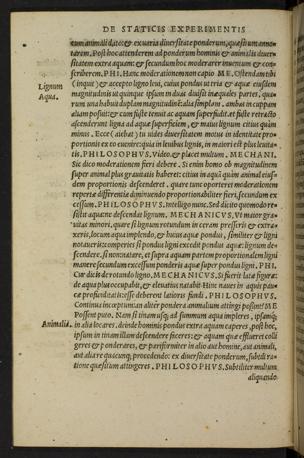 DE STATICIS EXPERIMENTIS
cum animali diceret & ex varia diversitate ponderum, quæsitum anno-
tarem. Post hoc attenderem ad ponderum hominis & animalis diver-
sitatem extra aquam: & secundum hoc moderarer inventum & con-
scriberem. PHI. Hanc moderationem non capio. ME. Ostendam tibi
Lignum
Aqua.
(inquit) & accepto ligno levi, cuius pondus ut tria & aquæ eiusdem
magnitudinis ut quinque ipsum in duas divisit inæquales partes, qua-
rum una habuit duplam magnitudinem: alia simplam. ambas in cuppam
aliam posuit: & cum fuste tenuit ac aquam superfudit. et fuste retracto
ascenderunt ligna ad aquæ superficiem, & maius lignum citius quàm
minus. Ecce (aiebat) tu vides diversitatem motus in identitate pro-
portionis ex eo evenire: quia in levibus lignis, in maiori est plus levita-
tis. PHILOSOPHVS. Video. & placet multum. MECHANI.
Sic dico moderationem fieri debere. Si enim homo ob magnitudinem
super animal plus gravitatis haberet: citius in aqua quàm animal eius-
dem proportionis descenderet. quare tunc oporteret moderationem
repertæ differentiæ diminuendo proportionabiliter fieri, secundum ex-
cessum. PHILOSOPHVS. Intelligo nunc. Sed dicito quomodo re-
sistit aqua: ne descendat lignum. MECHANICVS. Vt maior gra-
vitas minori, quare si lignum rotundum in ceram presseris & extra-
xeris, locum aqua implendo, & huius aquæ pondus, similiter & ligni
notaveris: comperies si pondus ligni excedit pondus aquæ: lignum de-
scendere. si non: natare, et supra aquam partem proportionalem ligni
manere secundum excessum ponderis aquæ super pondus ligni. PHI.
Cur dicis de rotundo ligno. MECHANICVS. Si fuerit latæ figuræ:
de aqua plus occupabit, & elevatius natabit. Hinc naves in aquis pau-
cæ profunditatis: esse debere latioris fundi. PHILOSOPHVS.
Continua inceptum: an aliter pondera animalium attingi possent? ME
Animalia.
Possent puto. Nam si tinam usque ad summum aqua impleres, ipsamque
in alia locares, deinde hominis pondus extra aquam caperes, post hoc,
ipsum in tinam illam descendere faceres: & aquam quæ efflueret colli-
geres & ponderares, & pariformiter in alio aut homine, aut animali,
aut alia re quacunque, procedendo: ex diversitate ponderum, subtili ra-
tione quæsitum attingeres. PHILOSOPHVS. Subtiliter multum
aliquando